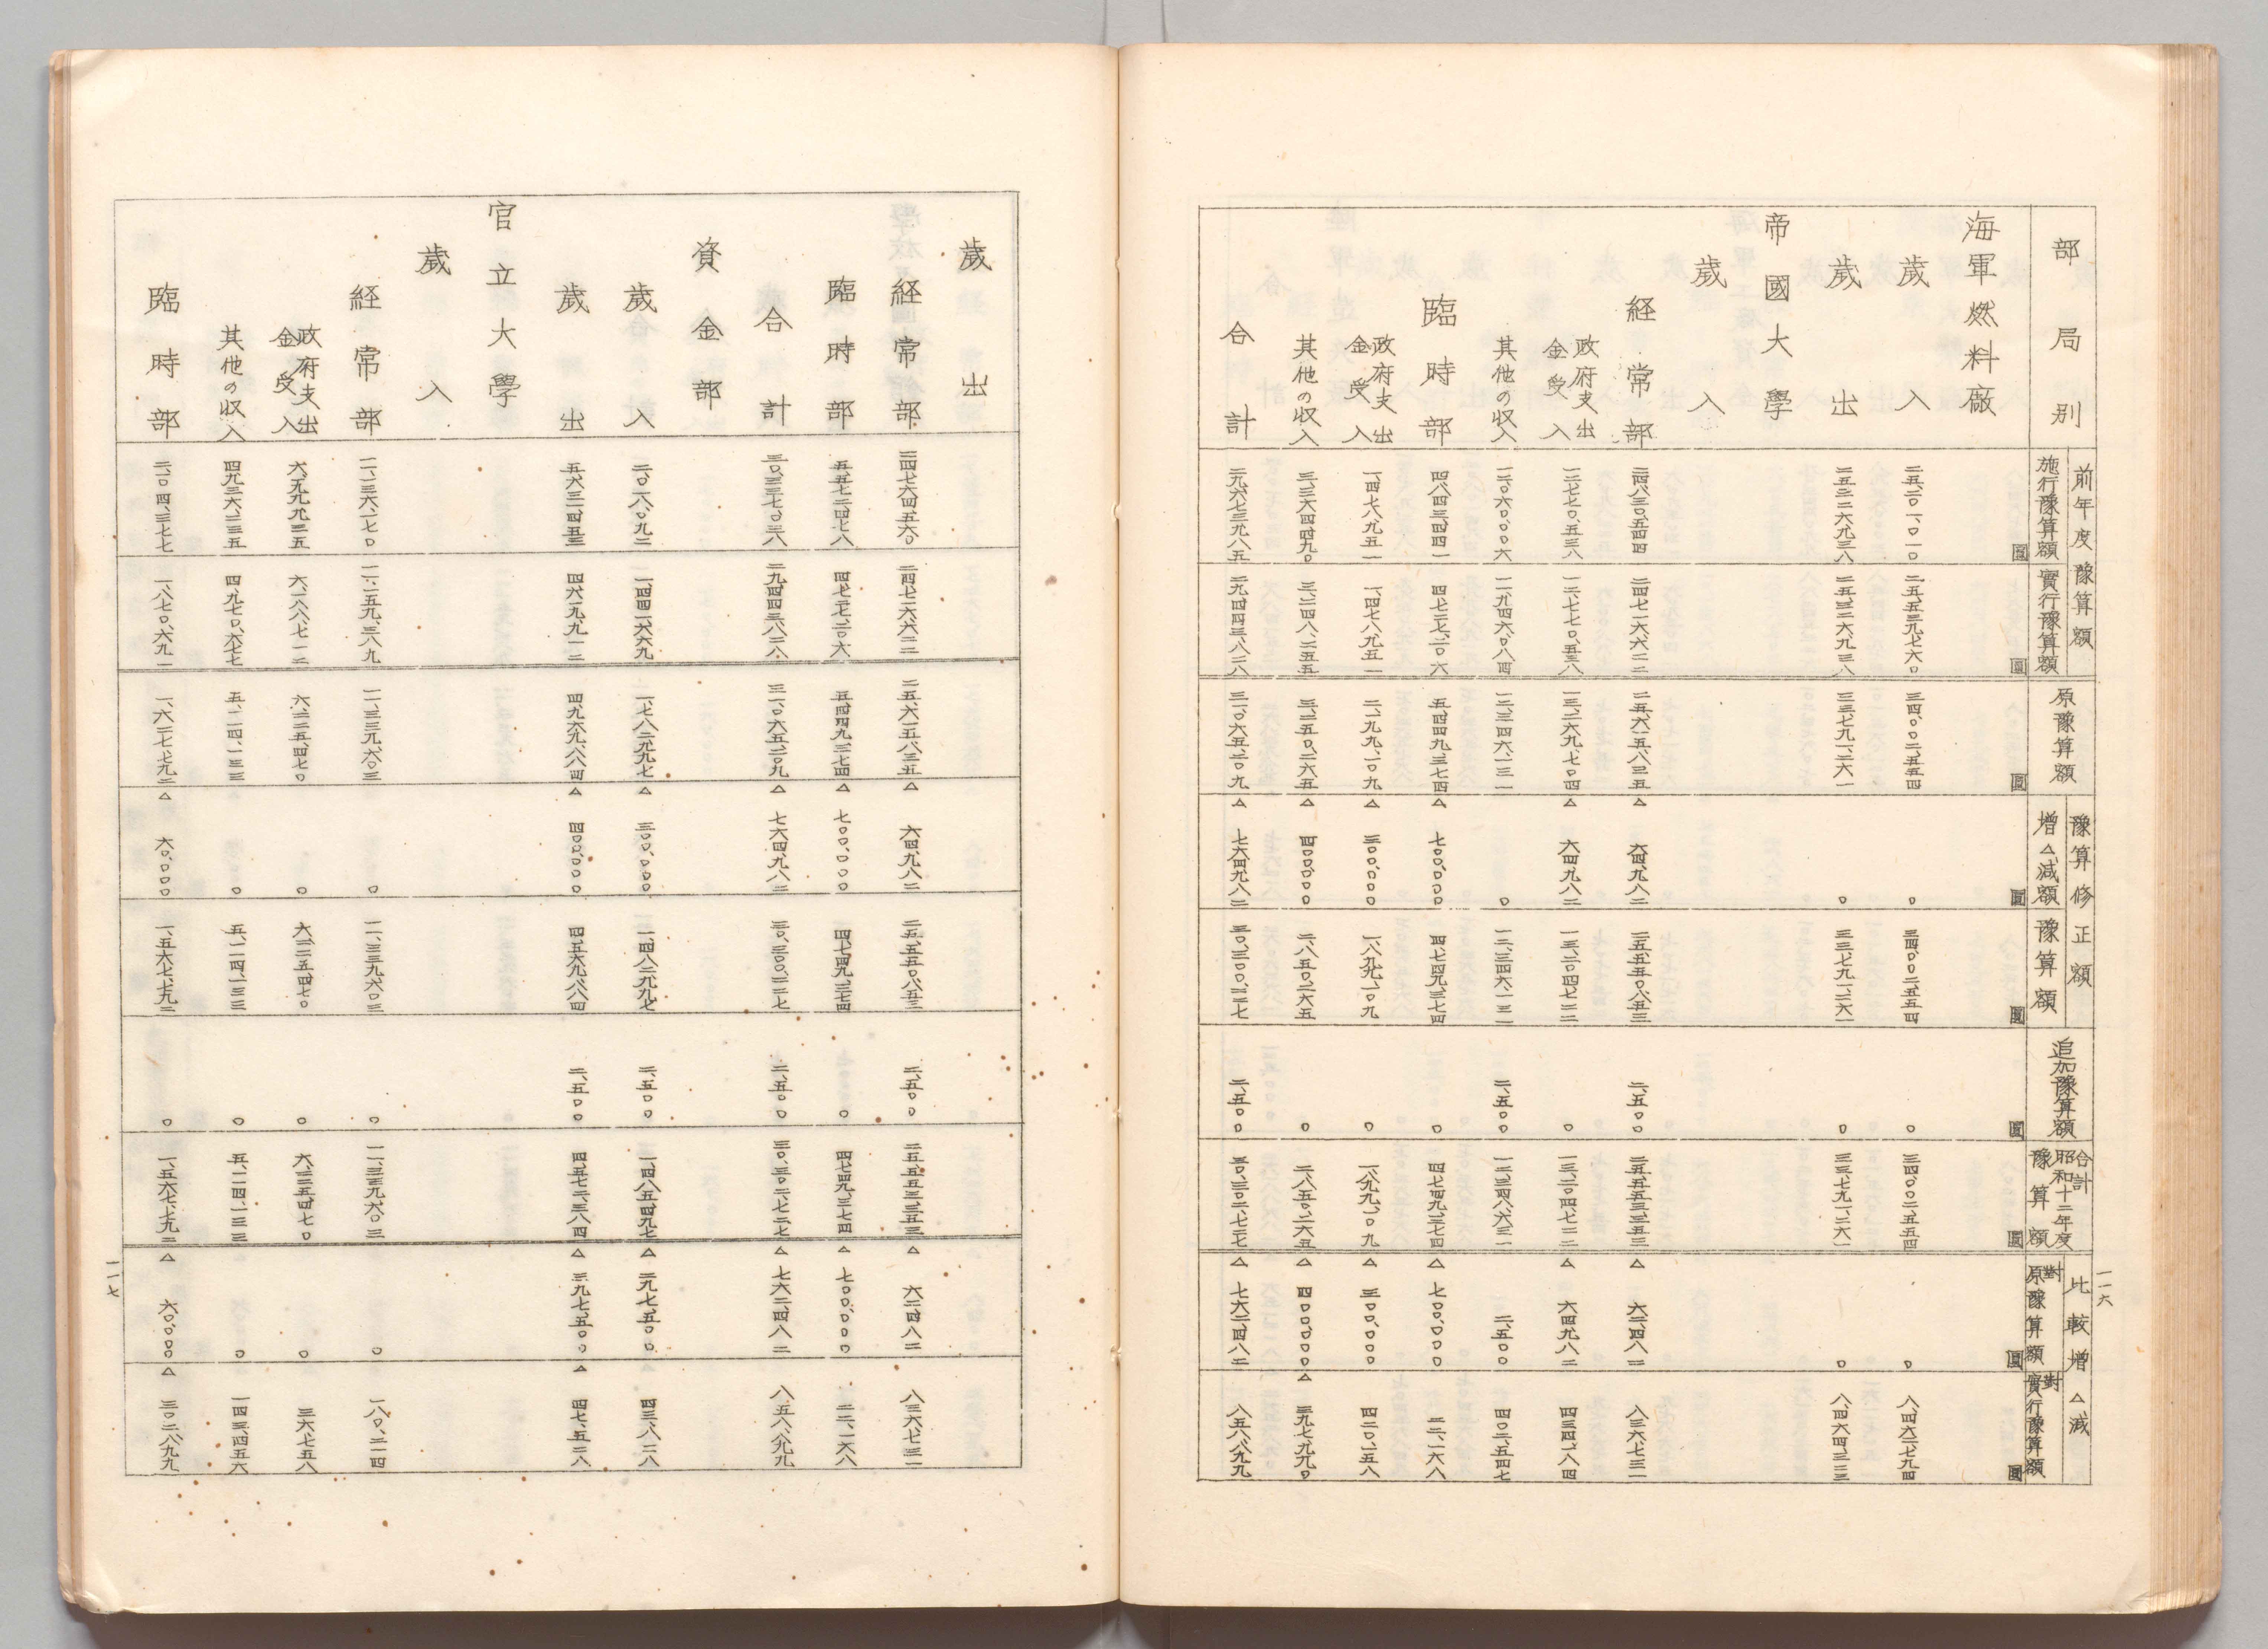 一一六
部局別
前年度豫算額
施行豫算額 圓
實行豫算額 圓
原豫算額 圓
豫算修正額
增△減額 圓
豫算額 圓
追加豫算額 圓
合計昭和十二年度豫算額 圓
比較增△減
對原豫算額 圓
對實行豫算額 圓
海軍燃料廠
歲入 二五、二〇一、〇一〇 二五、五三九、七六〇 三四、〇〇二、五五四 〇 三四、〇〇二、五五四 〇 三四、〇〇二、五五四 〇 八、四六二、七九四
歲出 二五、二二六、九三八 二五、三二六、九三八 三三、七九一、二六一 〇 三三、七九一、二六一 〇 三三、七九一、二六一 〇 八、四六四、三二三
帝國大學
歲入
経常部 二四、八三〇、五四四 二四、七一六、六二二 二五、六一五、八三五 △六四、九八二 二五、五五〇、八五三 二、五〇〇 二五、五五三、三五三 △六二、四八二 八三六、七三一
政府支出金受入 一二、七七〇、五三八 一二、七七〇、五三八 一三、二六九、七〇四 △六四、九八二 一三、二〇四、七二二 〇 一三、二〇四、七二二 △六四、九八二 四三四、一八四
其他の収入 一二、〇六〇、〇〇六 一一、九四六、〇八四 一二、三四六、一三一 〇 一二、三四六、一三一 二、五〇〇 一二、三四八、六三一 二、五〇〇 四〇二、五四七
臨時部 四、八四三、四四一 四、七二七、二〇六 五、四四九、三七四 △七〇〇、〇〇〇 四、七四九、三七四 〇 四、七四九、三七四 △七〇〇、〇〇〇 二二、一六八
政府支出金受入 一、四七八、九五一 一、四七八、九五一 二、一九九、一〇九 △三〇〇、〇〇〇 一、八九九、一〇九 〇 一、八九九、一〇九 △三〇〇、〇〇〇 四二〇、一五八
其他の収入 三、三六四、四九〇 三、二四八、二五五 三、二五〇、二六五 △四〇〇、〇〇〇 二、八五〇、二六五 〇 二、八五〇、二六五 △四〇〇、〇〇〇 △三九七、九九〇
合計 二九、六七三、九八五 二九、四四三、八二八 三一、〇六五、二〇九 △七六四、九八二 三〇、三〇〇、二二七 二、五〇〇 三〇、三〇二、七二七 △七六二、四八二 八五八、八九九
歲出
経常部 二四、七六四、五六〇 二四、七一六、六二二 二五、六一五、八三五 △六四、九八二 二五、五五〇、八五三 二、五〇〇 二五、五五三、三五三 △六二、四八二 八三六、七三一
臨時部 五、五七二、四七八 四、七二七、二〇六 五、四四九、三七四 △七〇〇、〇〇〇 四、七四九、三七四 〇 四、七四九、三七四 △七〇〇、〇〇〇 二二、一六八
合計 三〇、三三七、〇三八 二九、四四三、八二八 三一、〇六五、二〇九 △七六四、九八二 三〇、三〇〇、二二七 二、五〇〇 三〇、三〇二、七二七 △七六二、四八二 八五八、八九九
資金部
歲入 二、〇一八、〇九二 一、四四一、六六九 一、七八二、九九七 △三〇〇、〇〇〇 一、四八二、九九七 二、五〇〇 一、四八五、四九七 △二九七、五〇〇 四三、八二八
歲出 五、六三二、四五三 四、六一九、九一二 四、九六九、八八四 △四〇〇、〇〇〇 四、五六九、八八四 二、五〇〇 四、五七二、三八四 △三九七、五〇〇 △四七、五二八
官立大學
歲入
経常部 一一、一三六、一七〇 一一、一五九、三八九 一一、三三九、六〇三 〇 一一、三三九、六〇三 〇 一一、三三九、六〇三 〇 一八〇、二一四
政府支出金受入 六、一九九、九三五 六、一八八、七一二 六、二二五、四七〇 〇 六、二二五、四七〇 〇 六、二二五、四七〇 〇 三六、七五八
其他の収入 四、九三六、二三五 四、九七〇、六七七 五、一一四、一三三 〇 五、一一四、一三三 〇 五、一一四、一三三 〇 一四三、四五六
臨時部 二、一〇四、三七七 一、八七〇、六九一 一、六二七、七九二 △六〇、〇〇〇 一、五六七、七九二 〇 一、五六七、七九二 △六〇、〇〇〇 △三〇二、八九九
一一七